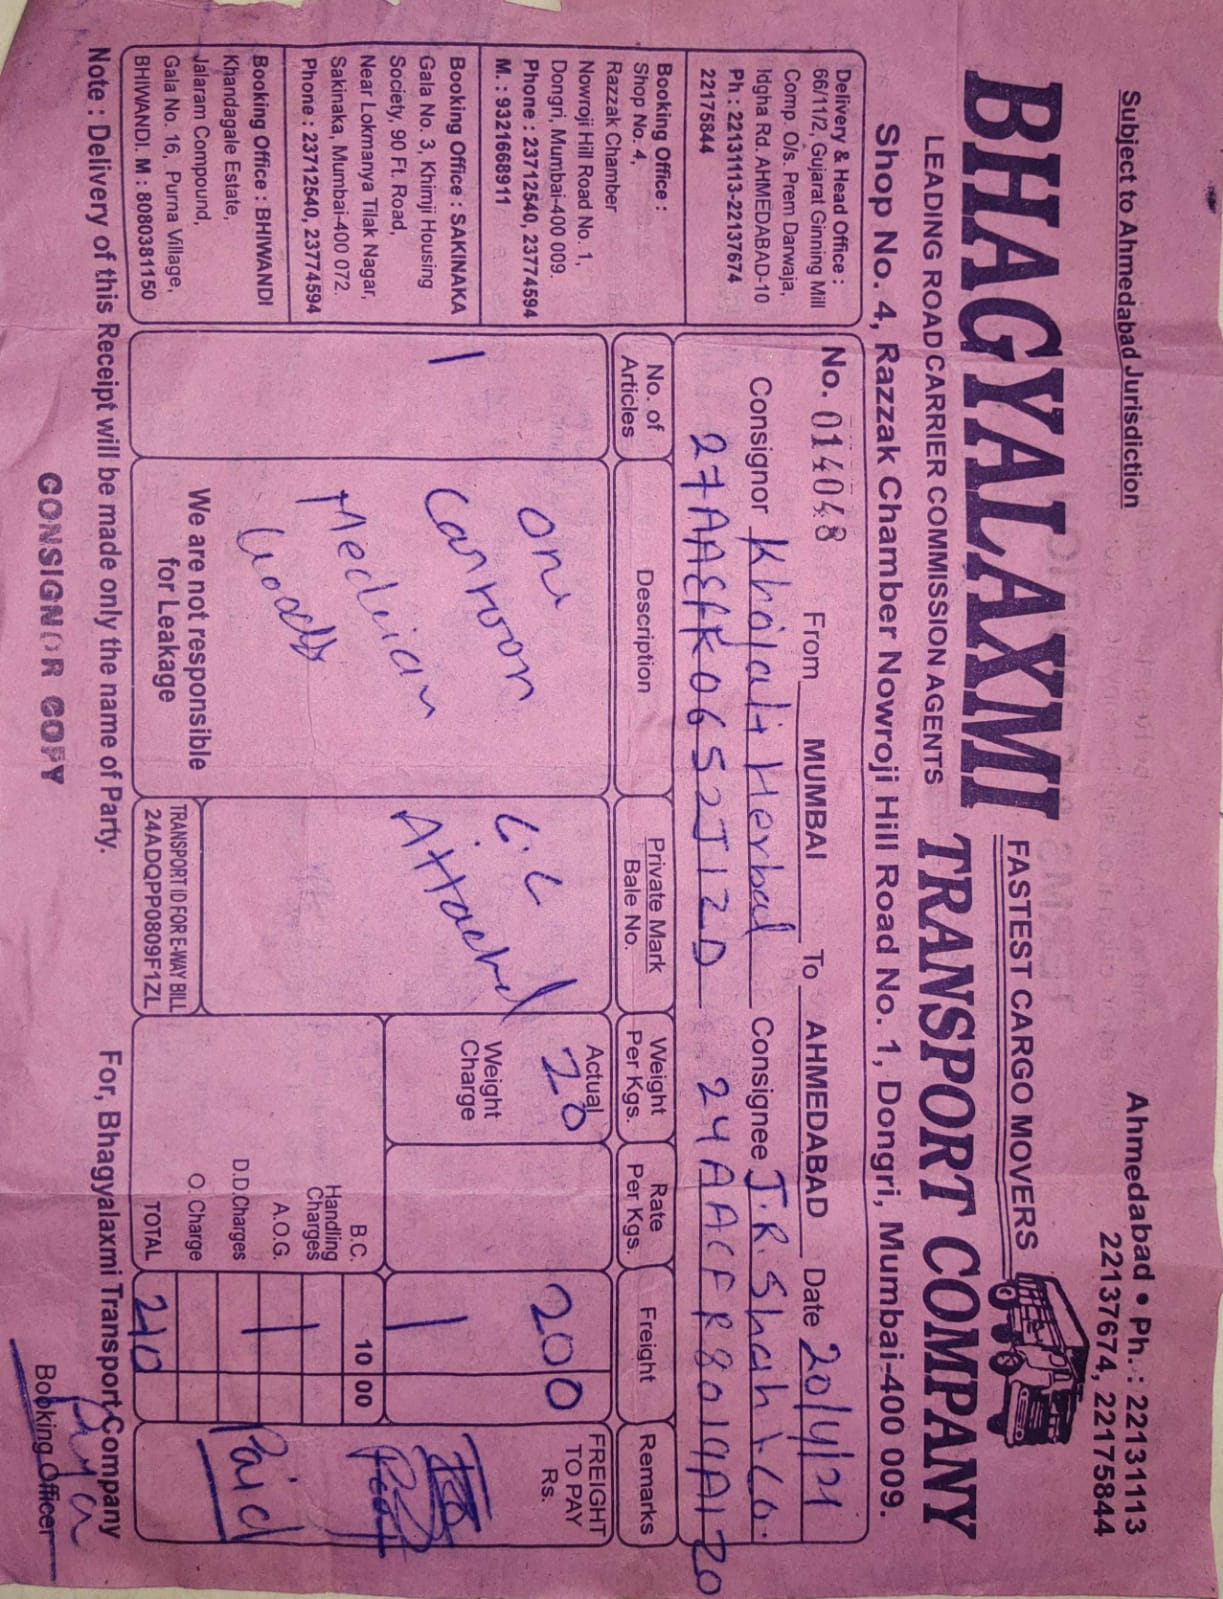 Subject to Ahmedabad Jurisdiction
Ahmedabad • Ph. : 22131113
22137674, 22175844
FASTEST CARGO MOVERS
BHAGYALAXMI TRANSPORT COMPANY
LEADING ROAD CARRIER COMMISSION AGENTS
Shop No. 4, Razzak Chamber Nowroji Hill Road No. 1, Dongri, Mumbai-400 009.
Delivery & Head Office :
66/11/2, Gujarat Ginning Mill
Comp. O/s. Prem Darwaja,
Idgha Rd. AHMEDABAD-10
Ph : 22131113-22137674
22175844
Booking Office :
Shop No. 4,
Razzak Chamber
Nowroji Hill Road No. 1,
Dongri, Mumbai-400 009.
Phone : 23712540, 23774594
M. : 9321668911
Booking Office : SAKINAKA
Gala No. 3, Khimji Housing
Society, 90 Ft. Road,
Near Lokmanya Tilak Nagar,
Sakinaka, Mumbai-400 072.
Phone : 23712540, 23774594
Booking Office : BHIWANDI
Khandagale Estate,
Jalaram Compound,
Gala No. 16, Purna Village,
BHIWANDI. M : 8080381150
No. 014048 From MUMBAI To AHMEDABAD Date 20/4/21
Consignor Khojati Herbal Consignee J.R. Shah & Co.
27AAEFK0652J1ZD 24AACFR8019A1ZO
No. of Articles
Description
Private Mark
Bale No.
Weight Per Kgs.
Rate Per Kgs.
Freight
Remarks
1
One
Cartoon
Medician
Goods
We are not responsible
for Leakage
C.C
Attached
TRANSPORT ID FOR E-WAY BILL
24ADQPP0809F1ZL
Actual
20
Weight
Charge
200
FREIGHT
TO PAY
Rs.
B.C. 10 00
Handling
Charges
A.O.G.
D.D.Charges
O. Charge
TOTAL 210
Paid
Note : Delivery of this Receipt will be made only the name of Party.
For, Bhagyalaxmi Transport Company
CONSIGNOR COPY
Booking Officer